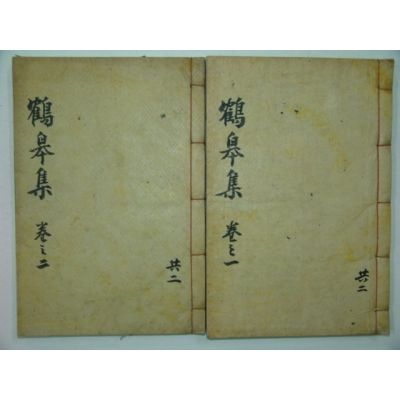 鶴皐集
卷之一
共二
鶴皐集
卷之二
共二